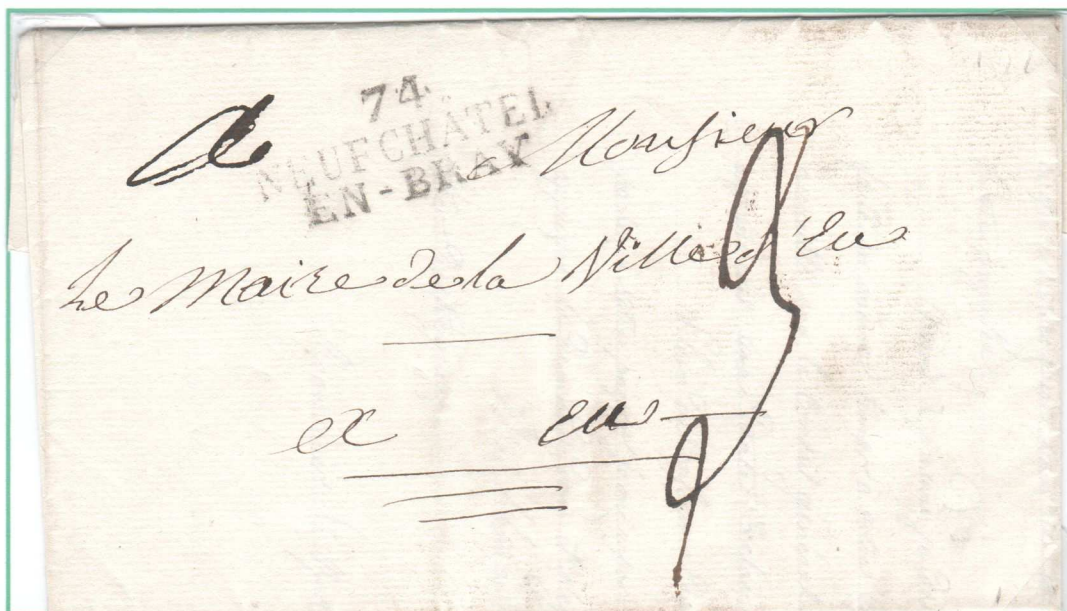 74
NEUFCHÂTEL
EN-BRAY
Monsieur
Le Maire de la Ville d'Eu
a Eu
3